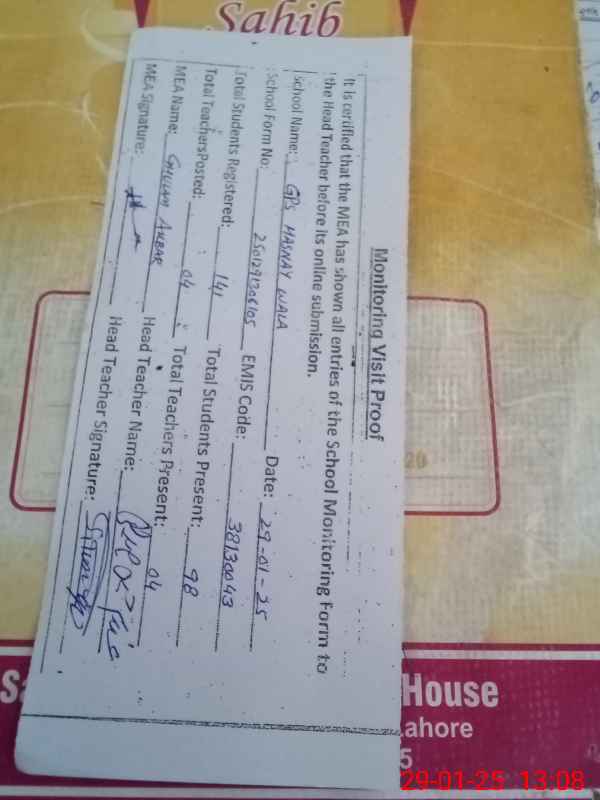 Sahib
Monitoring Visit Proof
It is certified that the MEA has shown all entries of the School Monitoring Form to
the Head Teacher before its online submission.
School Name: GPS HASNAY WALA Date: 29-01-25
School Form No: 2501291306105 EMIS Code: 38130043
Total Students Registered: 141 Total Students Present: 98
Total Teachers Posted: 04 Total Teachers Present: 04
MEA Name: GHULAM AKBAR Head Teacher Name:
MEA Signature: Head Teacher Signature:
20
House
ahore
5
29-01-25 13:08